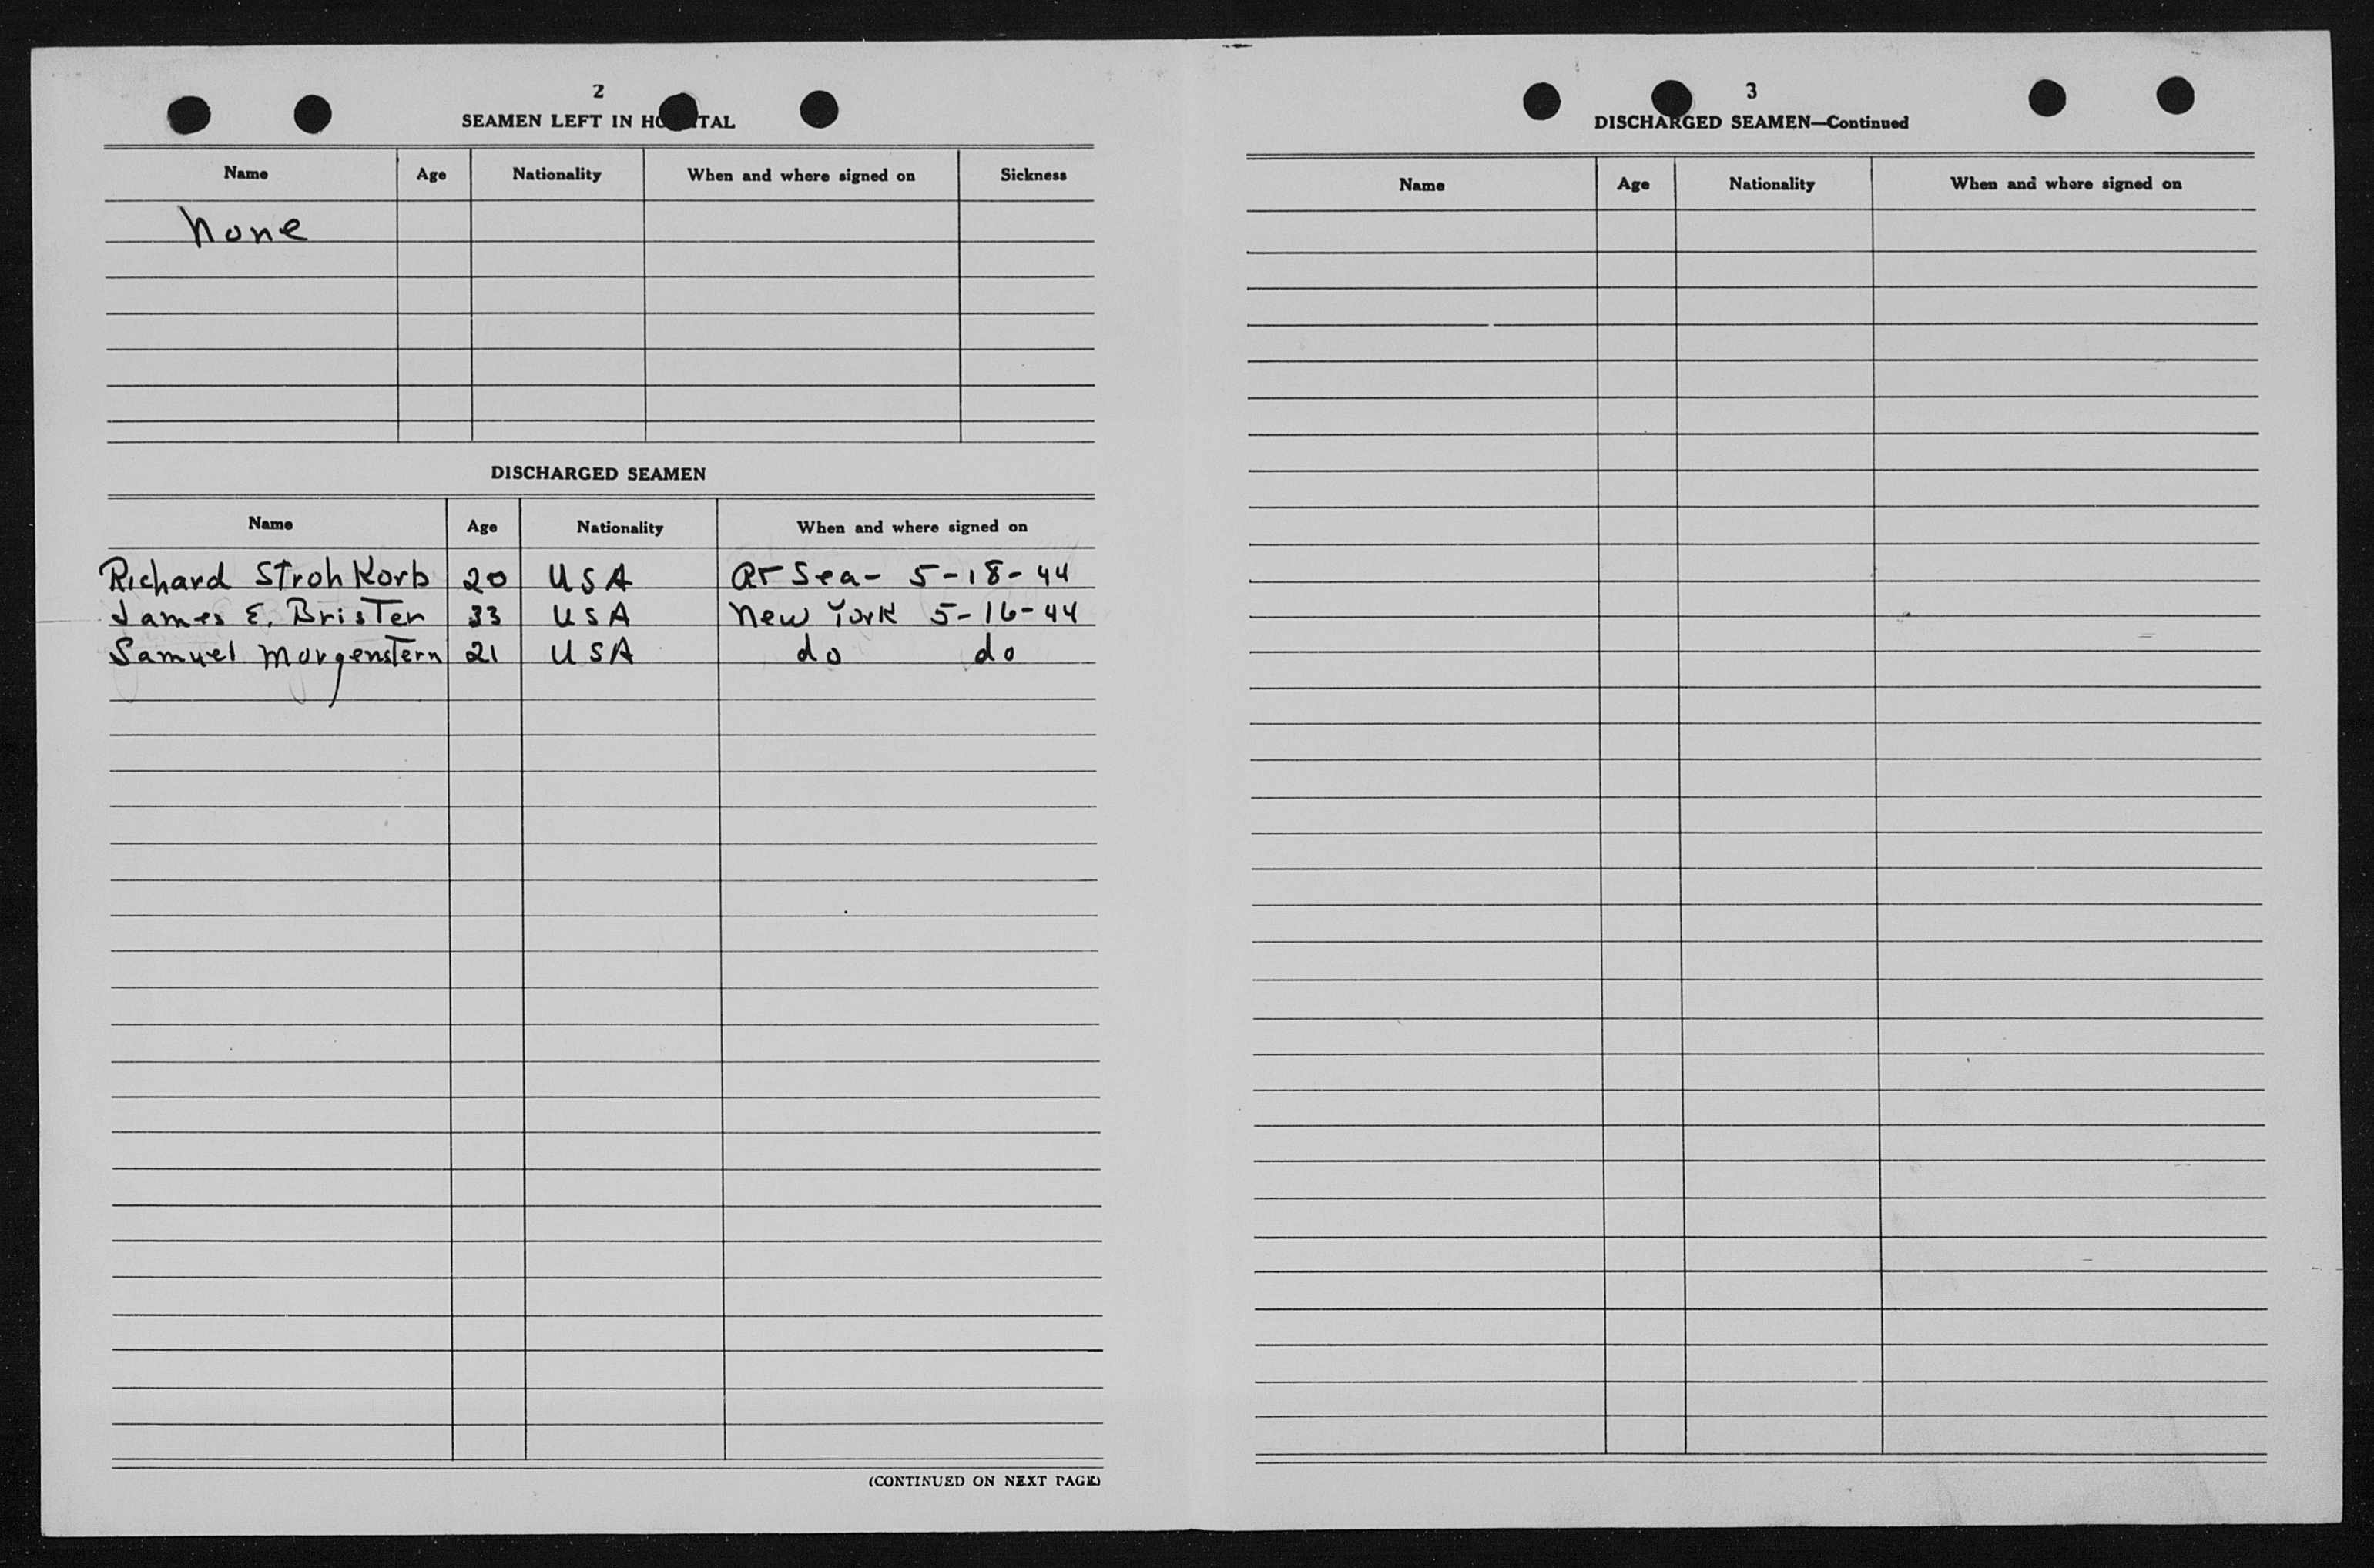 2
SEAMEN LEFT IN HO TAL
Name Age Nationality When and where signed on Sickness
None
DISCHARGED SEAMEN
Name Age Nationality When and where signed on
Richard StrohKorb 20 USA At Sea - 5-18-44
James E. Brister 33 USA New York 5-16-44
Samuel Morgenstern 21 USA do do
(CONTINUED ON NEXT PAGE)
3
DISCHARGED SEAMEN—Continued
Name Age Nationality When and where signed on